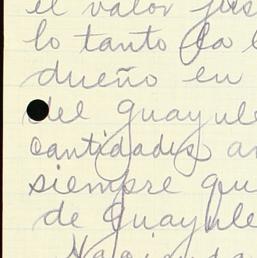 el valor jus
lo tanto la l
dueño en
del guayule
cantidades an
siempre qu
de Guayule